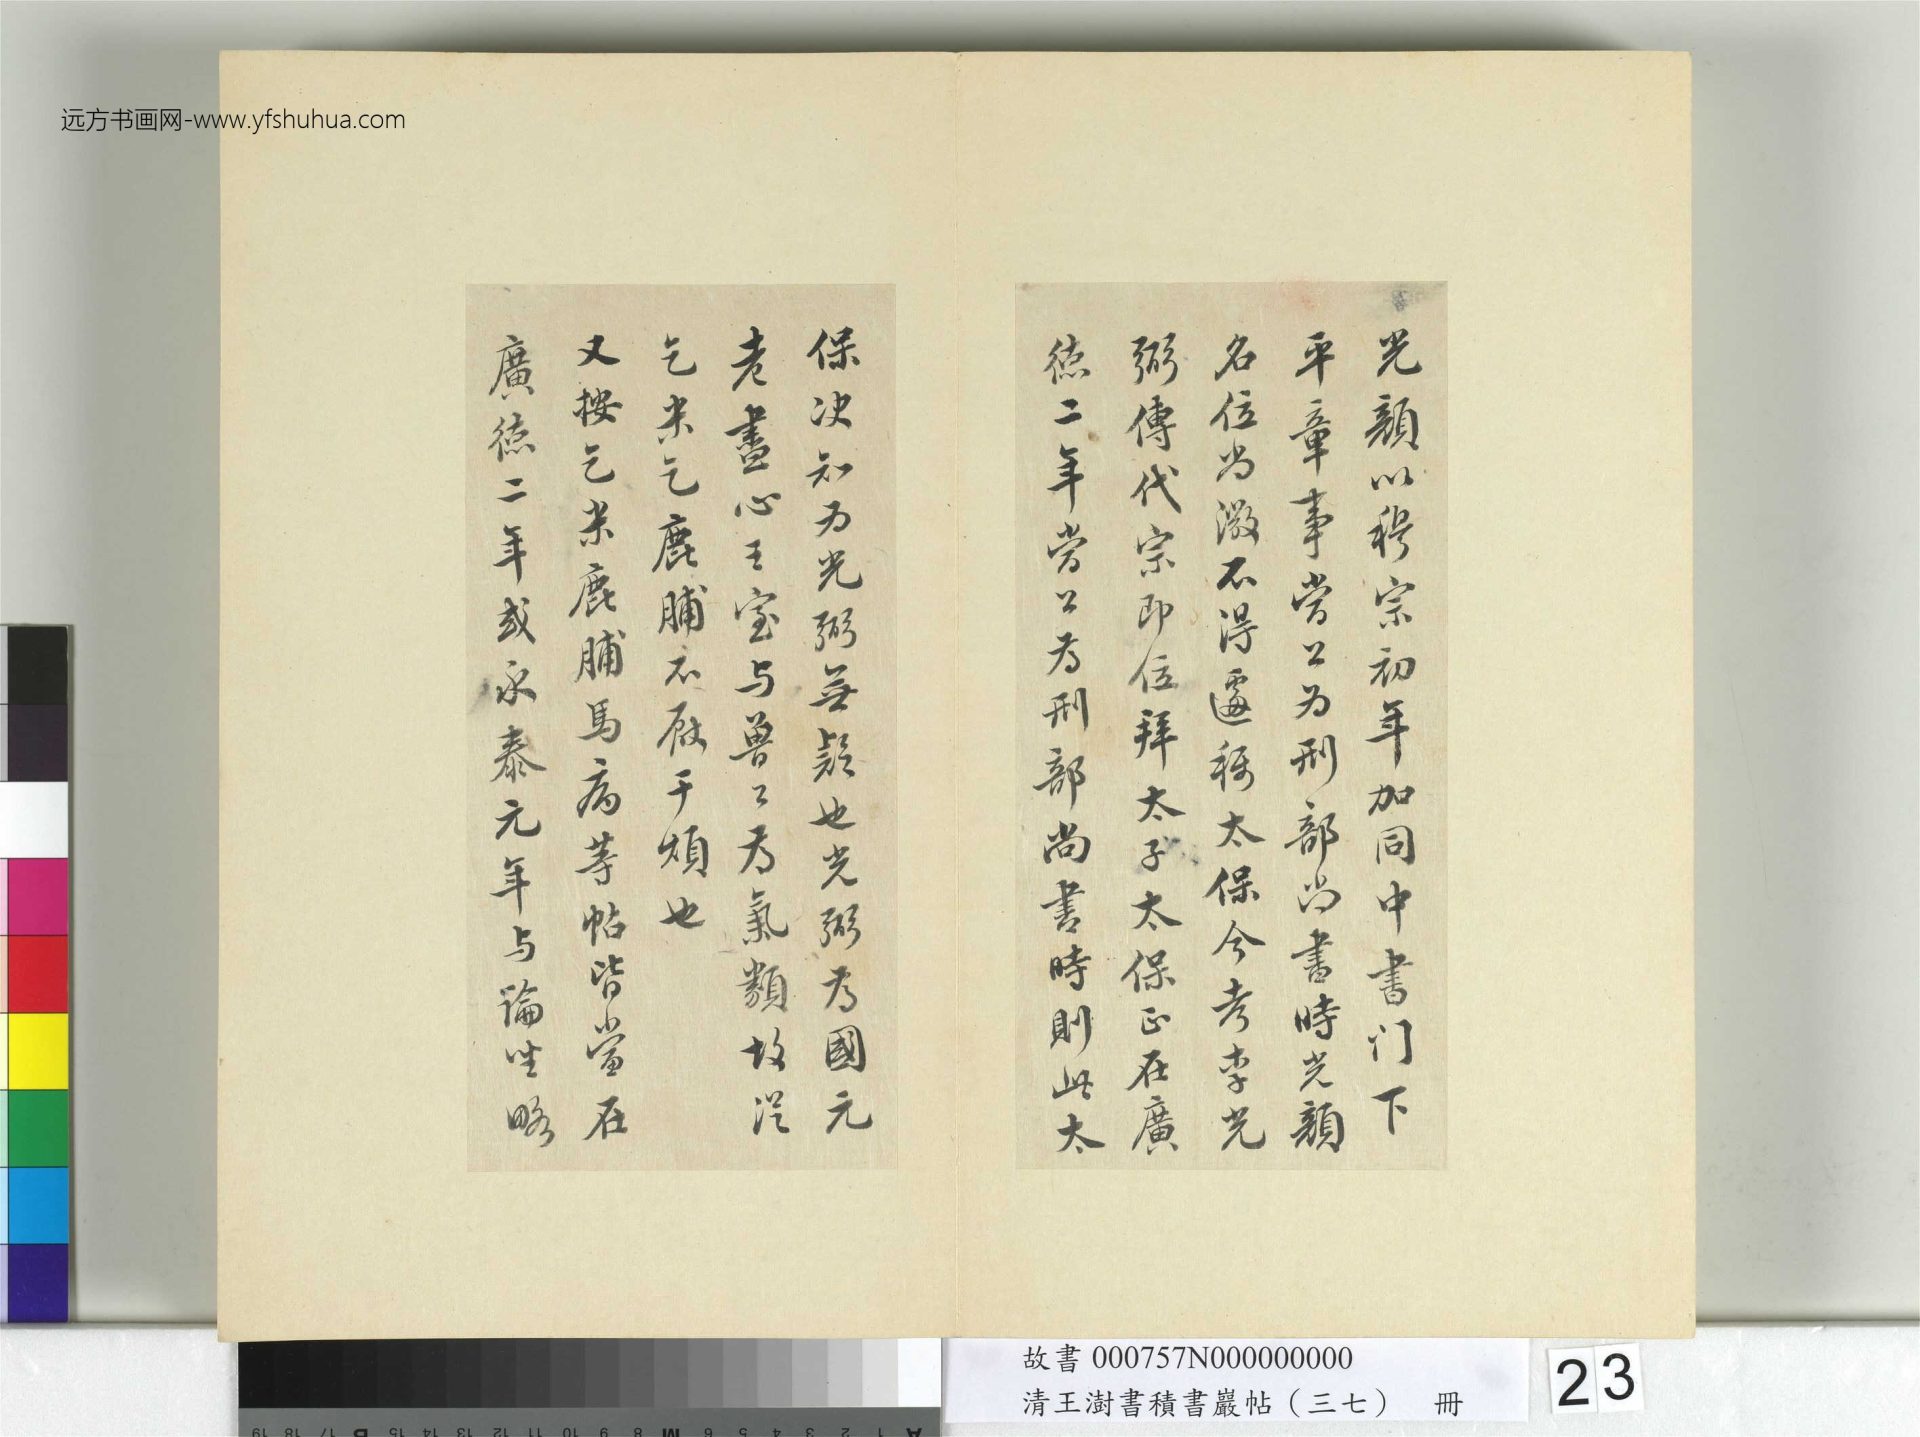 远方书画网-www.yfshuhua.com
光顏以穆宗初年加同中書门下
平章事當公为刑部尚書時光顏
名位尚微不得遽稱太保今考李光
弼傳代宗即位拜太子太保正在廣
德二年當公为刑部尚書時則此太
保决知为光弼無疑也光弼为國元
老盡心王室与魯公为氣類故從
乞米乞鹿脯不厭干煩也
又按乞米鹿脯馬病等帖皆當在
廣德二年或永泰元年与論坐略
故書 000757N000000000
清王澍書積書巖帖（三七） 冊
23